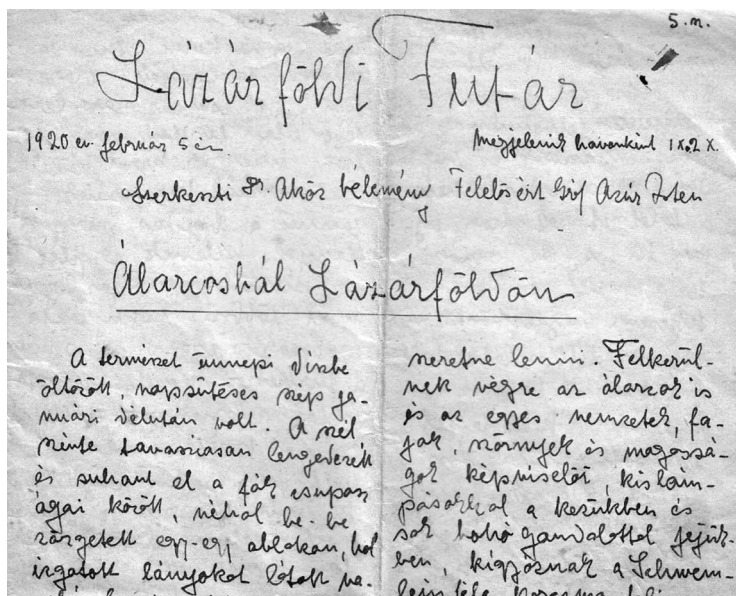 5. n.
Lázárföldi Futár
1920 év február 5 én
Megjelenik havonkint 1 x. 2 x.
Szerkeszti Dr. Akós bélemény Felelős ért Gróf Azúr Isten
Álarcosbál Lázárföldön
A természet ünnepi díszbe
öltözött, napsütéses szép ja-
nuári délután volt. A szél
szinte tavasziasan lengedezett
és suhant el a fák csupasz
ágai között, néhol be-be
zörgetett egy-egy ablakon, hol
izgatott lányokat látott va-
szeretne lenni. Felkerül-
nek végre az álarcok is
és az egyes nemzetek, fa-
jok, szörnyek és magossá-
gok képviselői, kis lám-
pásokkal a kezükben és
sok bohó gondolattal fejük-
ben, kígyóznak a Schwem-
lein féle